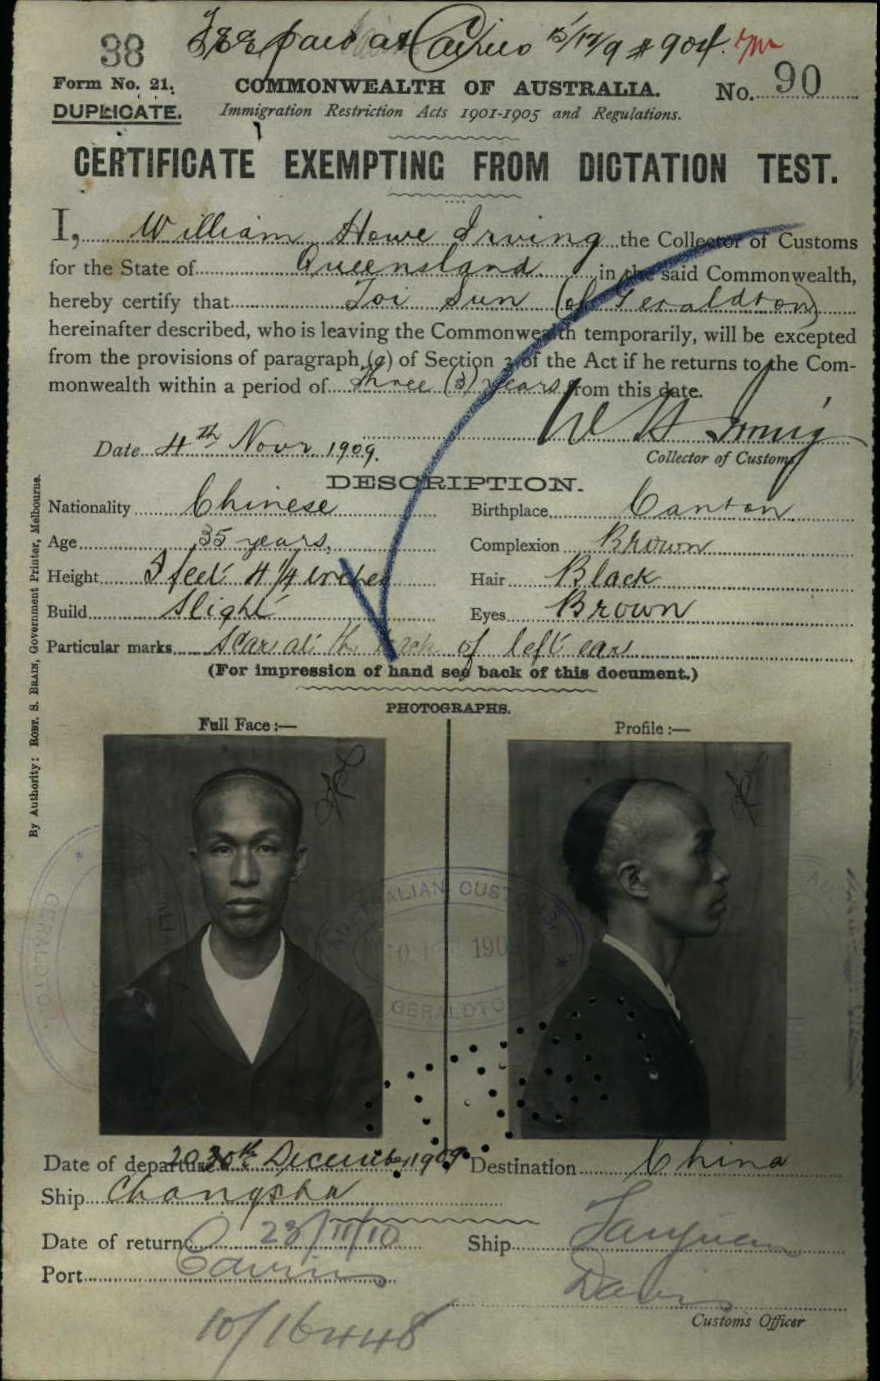 38
Fee paid at Cairns 15/12/9 # 904.
Form No. 21.
COMMONWEALTH OF AUSTRALIA.
No. 90
DUPLICATE.
Immigration Restriction Acts 1901-1905 and Regulations.
CERTIFICATE EXEMPTING FROM DICTATION TEST.
I, William Howe Irving the Collector of Customs
for the State of Queensland in the said Commonwealth,
hereby certify that Toi Sun (of Geraldton)
hereinafter described, who is leaving the Commonwealth temporarily, will be excepted
from the provisions of paragraph (a) of Section 3 of the Act if he returns to the Com-
monwealth within a period of three (3) years from this date.
W H Irving
Date 4th Novr. 1909.
Collector of Customs
DESCRIPTION.
Nationality Chinese
Birthplace Canton
Age 35 years.
Complexion Brown
Height 5 feet 4 1/4 inches
Hair Black
Build Slight
Eyes Brown
Particular marks Scar at the back of left ear
(For impression of hand see back of this document.)
PHOTOGRAPHS.
Full Face :—
Profile :—
By Authority: ROBT. S. BRAIN, Government Printer, Melbourne.
AUSTRALIAN CUSTOMS
190
GERALDTON
GERALDTON
Date of departure 20th December 1909
Destination China
Ship Changsha
Date of return 23/11/10
Ship Taiyuan
Port Cairns
Davis
Customs Officer
10/16448